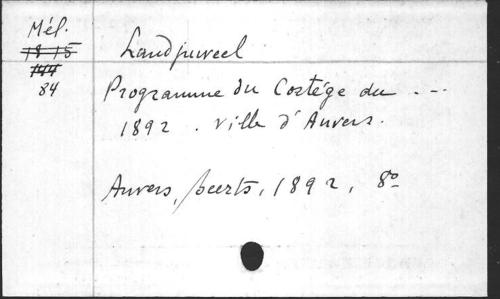 Mél.
18 15
144
84
Landjuweel
Programme du Cortége du ...
1892. Ville d'Anvers.
Anvers, Beerts, 1892, 8º